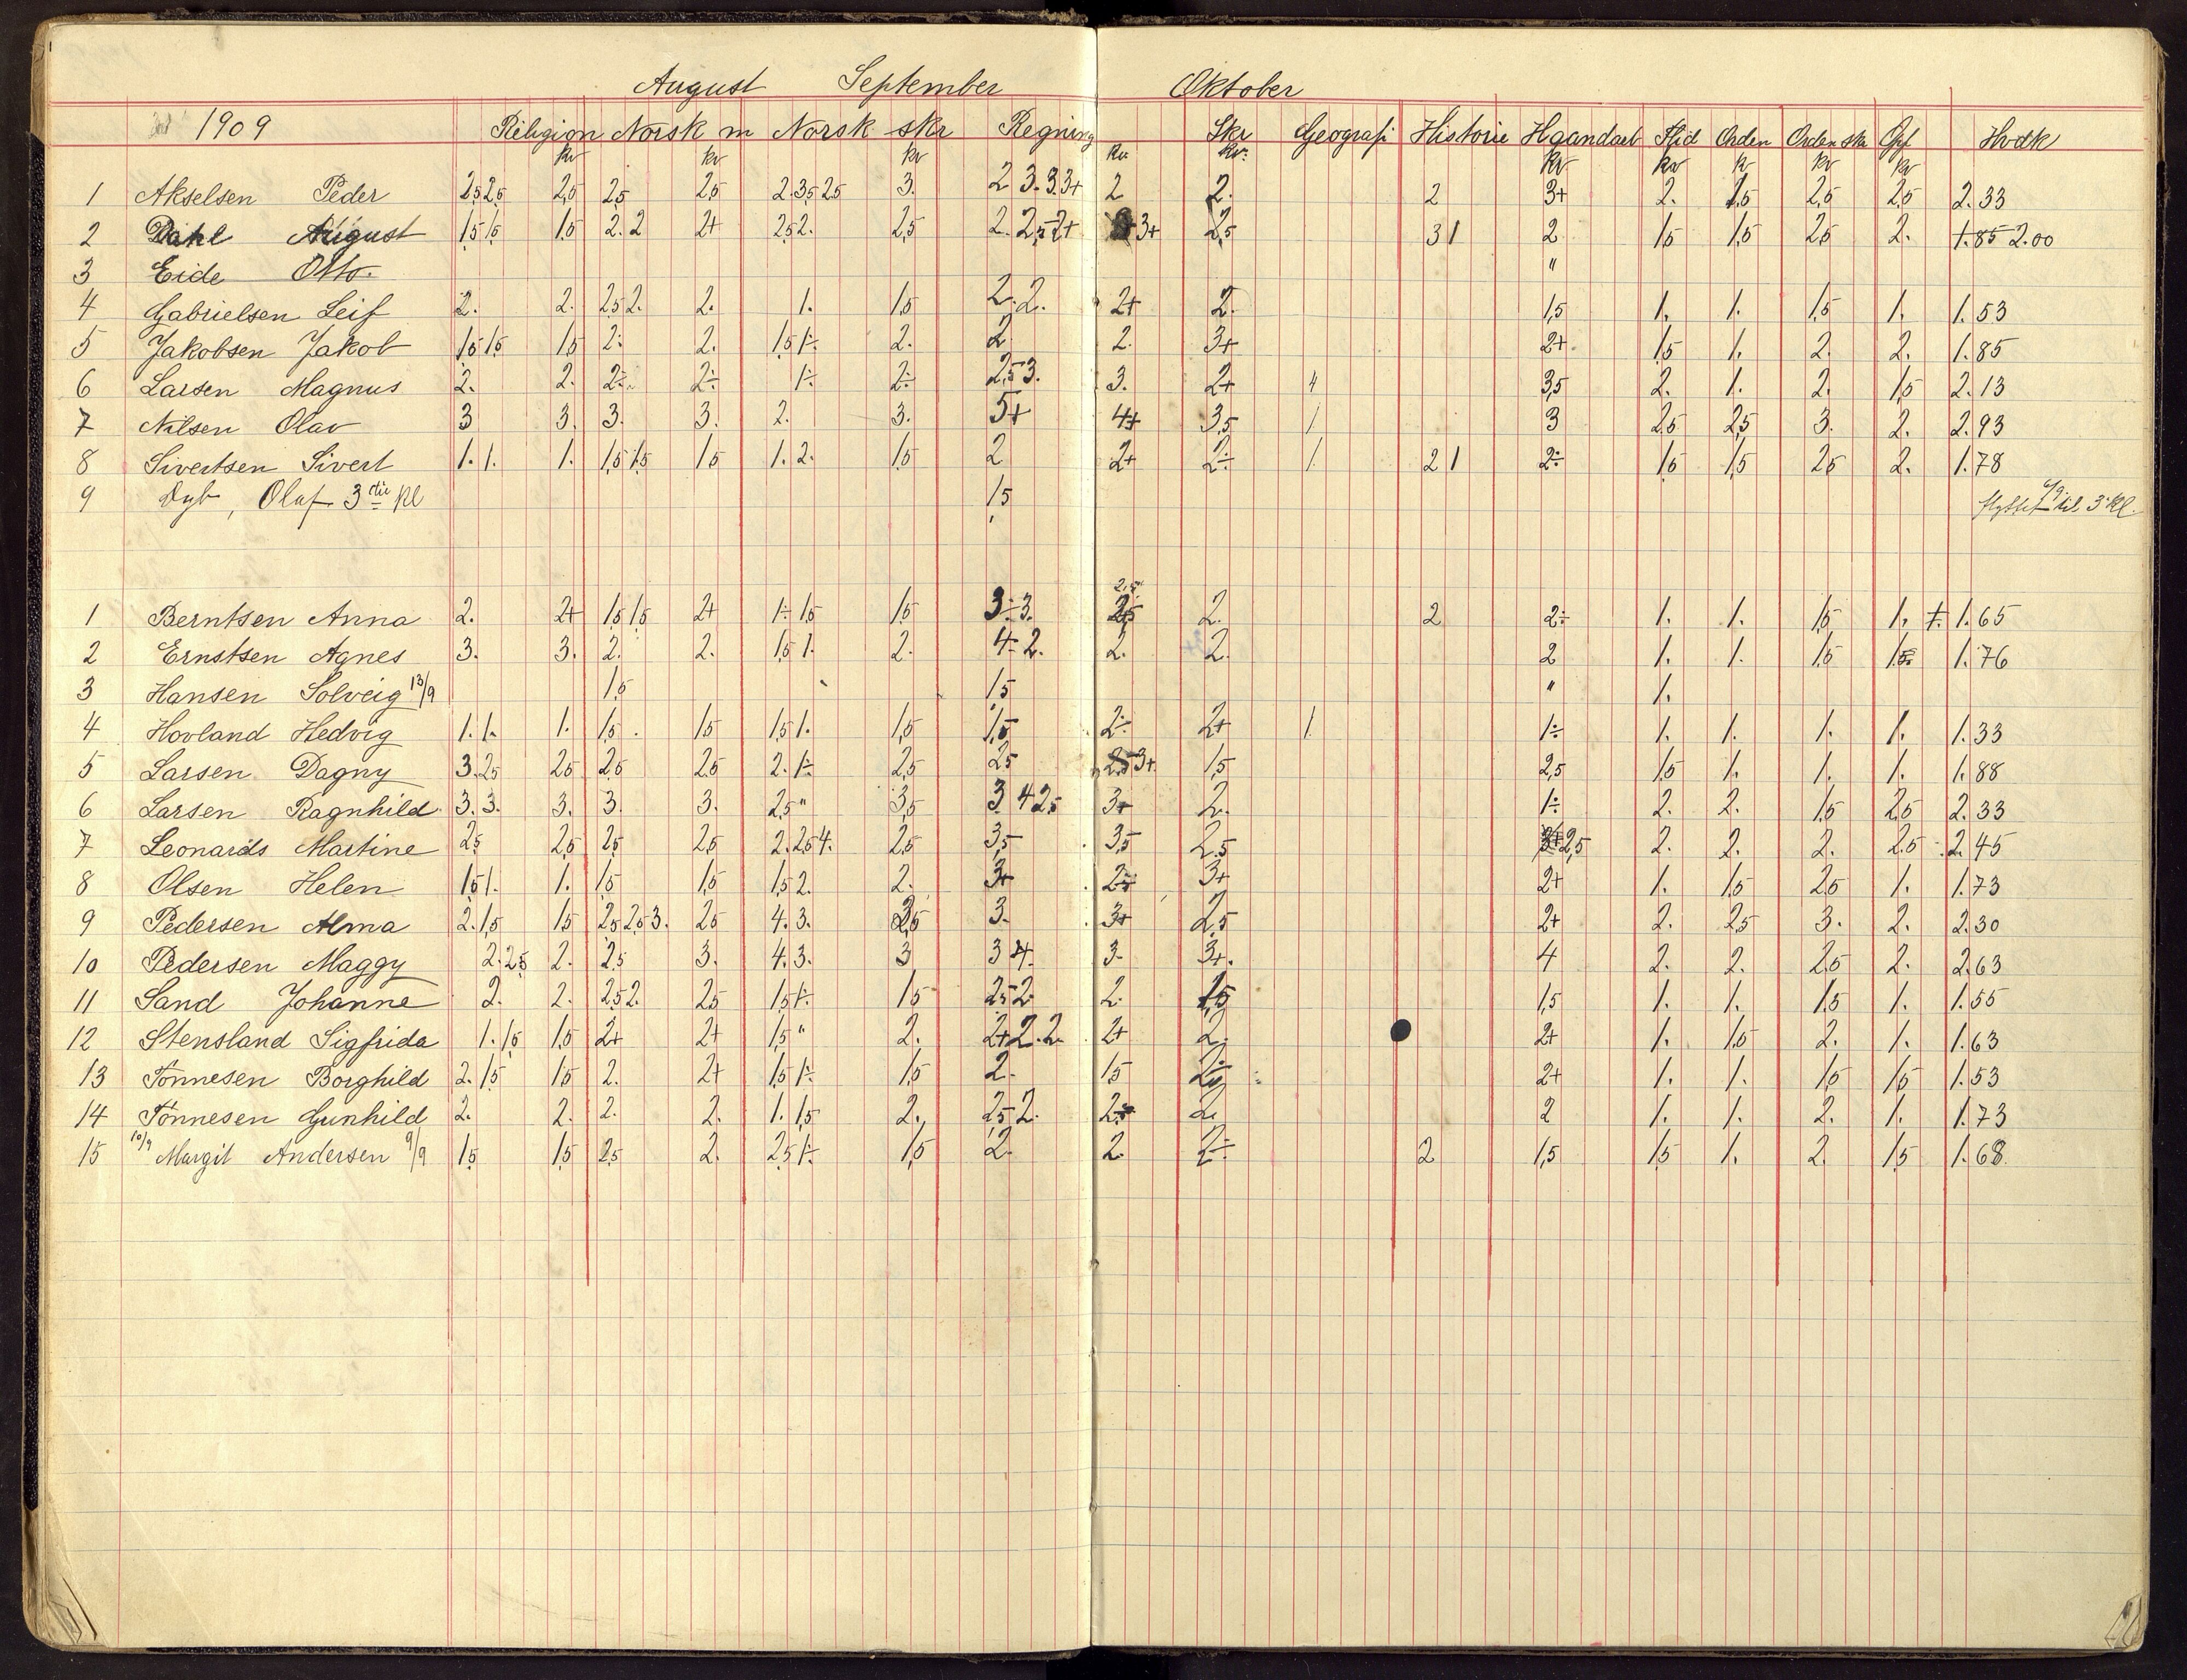 August September Oktober
1909 Religion Norsk m Norsk skr Regning Skr Geografi Historie Haandarb Flid Orden Orden skr Opf Hvdk
kv kv kv kv kv. kv kv kv kv kv
1 Akselsen Peder 2,5 2,5 2,5 2,5 2,5 2. 3,5 2,5 3. 2 3. 3. 3+ 2 2. 2 3+ 2. 1,5 2,5 2,5 2.33
2 Dahl August 1,5 1,5 1,5 2. 2 2+ 2,5 2. 2,5 2. 2,5 2+ 3+ 2,5 3 1 2 1,5 1,5 2,5 2. 1.85 2.00
3 Eide Otto. "
4 Gabrielsen Leif 2. 2. 2,5 2. 2. 1. 1,5 2. 2. 2+ 2. 1,5 1. 1. 1,5 1. 1.53
5 Jakobsen Jakob 1,5 1,5 1,5 2÷ 2. 1,5 1÷ 2. 2 2. 3+ 2+ 1,5 1. 2. 2. 1.85
6 Larsen Magnus 2. 2. 2÷ 2÷ 1÷ 2÷ 2,5 3. 3. 2+ 4 3,5 2. 1. 2. 1,5 2.13
7 Nilsen Olav 3 3. 3. 3. 2. 3. 5+ 4+ 3,5 1 3 2,5 2,5 3. 2. 2.93
8 Sivertsen Sivert 1. 1. 1. 1,5 1,5 1,5 1. 2. 1,5 2 2+ 2÷ 1 2 1 2÷ 1,5 1,5 2,5 2. 1.78
9 Dyb, Olaf 3die kl 1,5 flyttet til 3 kl.
1 Berntsen Anna 2. 2+ 1,5 1,5 2+ 1÷ 1,5 1,5 3÷ 3. 2,5 2,5 2. 2 2÷ 1. 1. 1,5 1. 1.65
2 Ernstsen Agnes 3. 3. 2. 2. 1,5 1. 2. 4÷ 2. 2. 2. 2 1. 1. 1,5 1,5 1.76
3 Hansen Solveig 13/9 1,5 1,5 " 1.
4 Hovland Hedvig 1. 1. 1. 1,5 1,5 1,5 1. 1,5 1,5 2÷ 2+ 1 1÷ 1. 1. 1. 1. 1.33
5 Larsen Dagny 3. 2,5 2,5 2,5 2,5 2. 1÷ 2,5 2,5 2,5 3+ 1,5 2,5 1,5 1. 1. 1. 1.88
6 Larsen Ragnhild 3. 3. 3. 3. 3. 2,5 " 3,5 3 4 2,5 3+ 2. 1÷ 2. 2. 1,5 2,5 2.33
7 Leonards Martine 2,5 2,5 2,5 2,5 2. 2,5 4. 2,5 3,5 3,5 2,5 3+ 2,5 2. 2. 2. 2.5 2.45
8 Olsen Helen 1,5 1. 1. 1,5 1,5 1,5 2. 2. 3+ 2÷ 3+ 2+ 1. 1,5 2,5 1. 1.73
9 Pedersen Alma 2. 1,5 1,5 2,5 2,5 3. 2,5 4. 3. 3,5 3. 3+ 2,5 2+ 2. 2,5 3. 2. 2.30
10 Pedersen Maggy 2. 2,5 2. 2,5 3. 4. 3. 3 3 4. 3. 3+. 4 2. 2. 2,5 2. 2.63
11 Sand Johanne 2. 2. 2,5 2. 2,5 1,5 1÷ 1,5 2,5 2. 2. 1,5 1,5 1. 1. 1,5 1. 1.55
12 Stensland Sigfrida 1. 1,5 1,5 2+ 2+ 1,5 " 2. 2+ 2. 2. 2+ 2. 2+ 1. 1,5 2. 1. 1.63
13 Tönnesen Borghild 2. 1,5 1,5 2. 2+ 1,5 1÷ 1,5 2. 1,5 2÷ 2+ 1. 1. 1,5 1,5 1.53
14 Tönnesen Gunhild 2. 2. 2. 2. 1. 1,5 2. 2,5 2. 2÷ 2. 2 1. 1. 2. 1. 1.73
15 10/9 Margit Andersen 9/9 1,5 1,5 2,5 2. 2,5 1÷ 1,5 2. 2. 2÷ 2 1,5 1,5 1. 2. 1,5 1.68